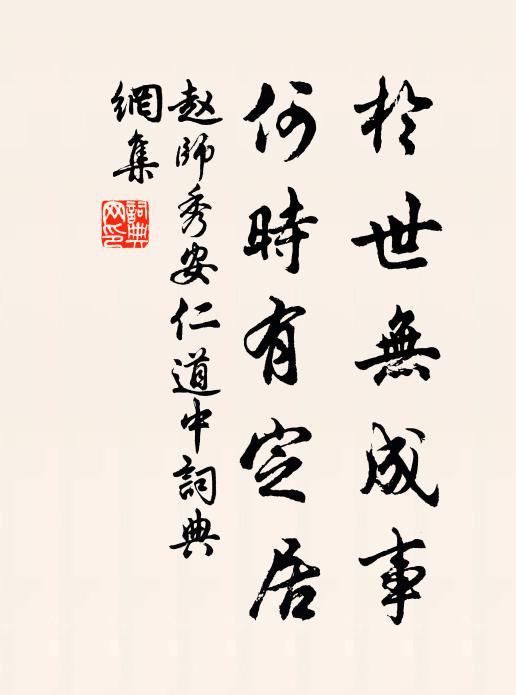 於世無成事
何時有定居
趙師秀安仁道中詞典
網集
詞典網印